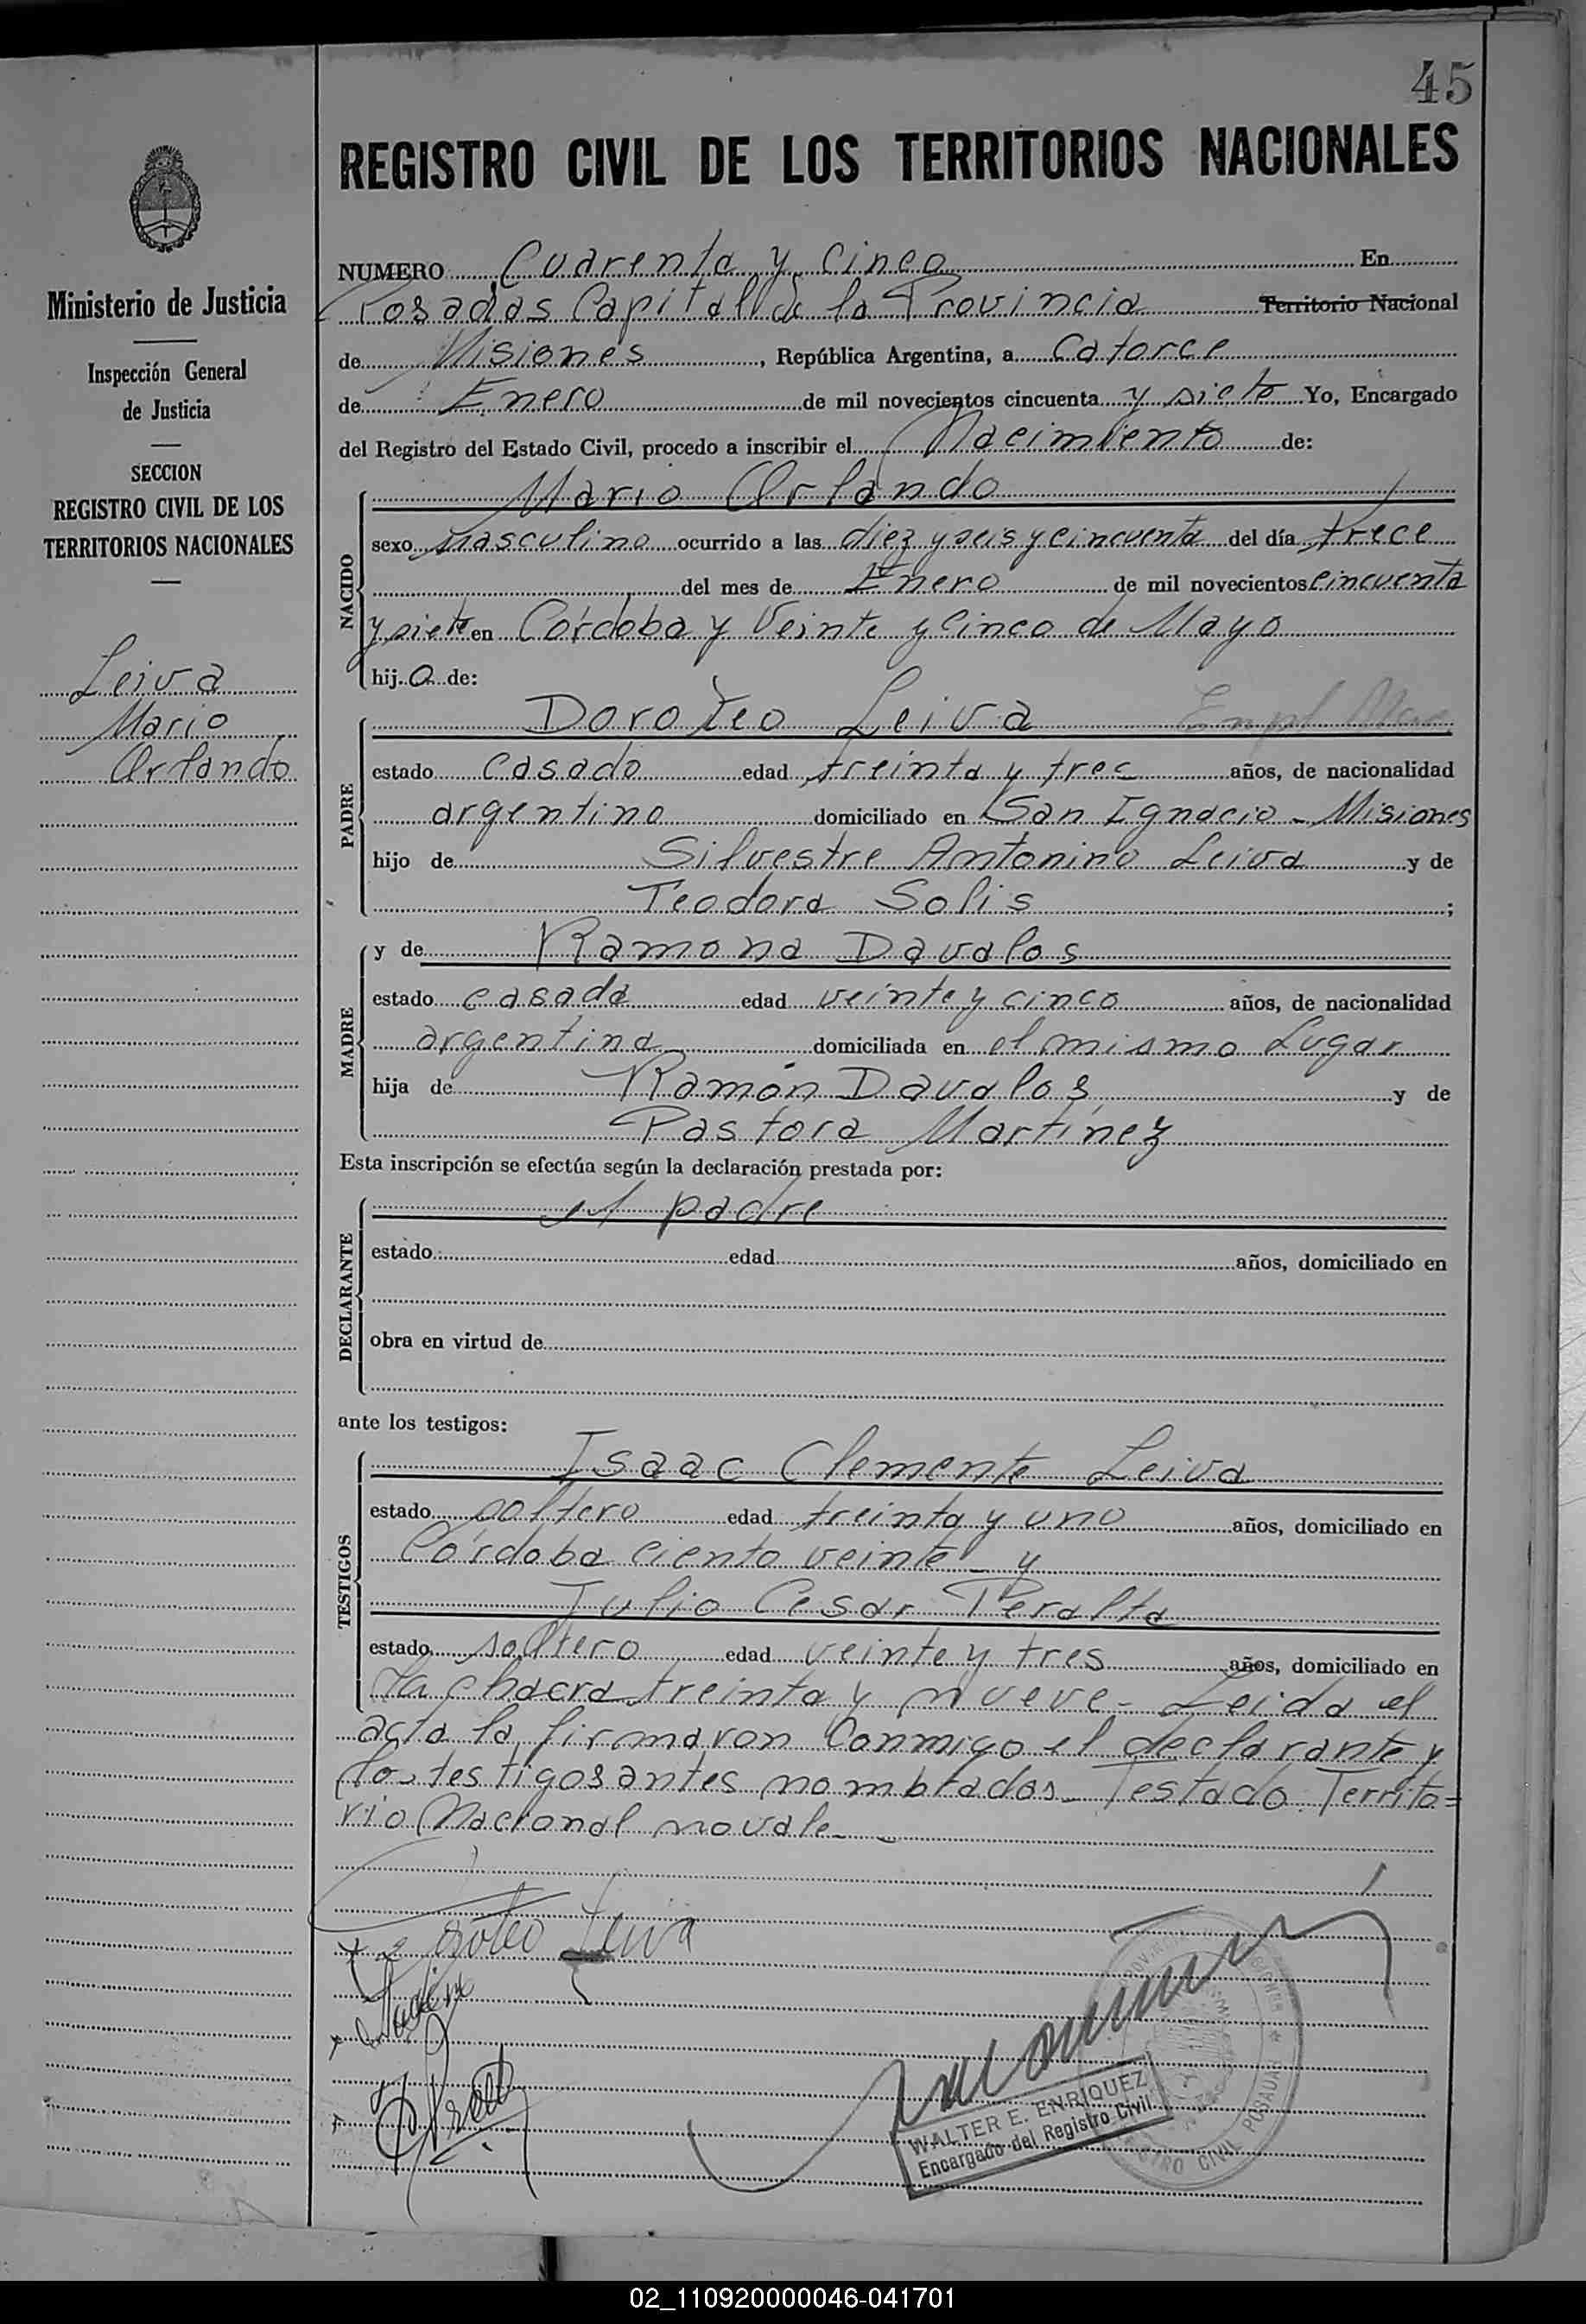 45
REGISTRO CIVIL DE LOS TERRITORIOS NACIONALES
Ministerio de Justicia
Inspección General
de Justicia
SECCION
REGISTRO CIVIL DE LOS
TERRITORIOS NACIONALES
Leiva
Mario
Orlando
NUMERO Cuarenta y Cinco En
Posadas Capital de la Provincia Territorio Nacional
de Misiones, República Argentina, a Catorce
de Enero de mil novecientos cincuenta y siete Yo, Encargado
del Registro del Estado Civil, procedo a inscribir el Nacimiento de:
NACIDO
Mario Orlando
sexo masculino ocurrido a las diez y seis y cincuenta del día trece
del mes de Enero de mil novecientos cincuenta
y siete en Córdoba y Veinte y Cinco de Mayo
hijo de:
PADRE
Doroteo Leiva Empl
estado Casado edad treinta y tres años, de nacionalidad
argentino domiciliado en San Ignacio - Misiones
hijo de Silvestre Antonino Leiva y de
Teodora Solis;
MADRE
y de Ramona Davalos
estado casada edad veinte y cinco años, de nacionalidad
argentina domiciliada en el mismo Lugar
hija de Ramón Davalos y de
Pastora Martinez
Esta inscripción se efectúa según la declaración prestada por:
DECLARANTE
el padre
estado edad años, domiciliado en
obra en virtud de
ante los testigos:
TESTIGOS
Isaac Clemente Leiva
estado soltero edad treinta y uno años, domiciliado en
Córdoba ciento veinte - y
Julio Cesar Peralta
estado soltero edad veinte y tres años, domiciliado en
la chacra treinta y nueve - Leida el
acta la firmaron Conmigo el declarante y
los testigos antes nombrados - Testado: Territo=
rio Nacional no vale -
Doroteo Leiva
WALTER E. ENRIQUEZ
Encargado del Registro Civil
REGISTRO CIVIL POSADAS
02_110920000046-041701